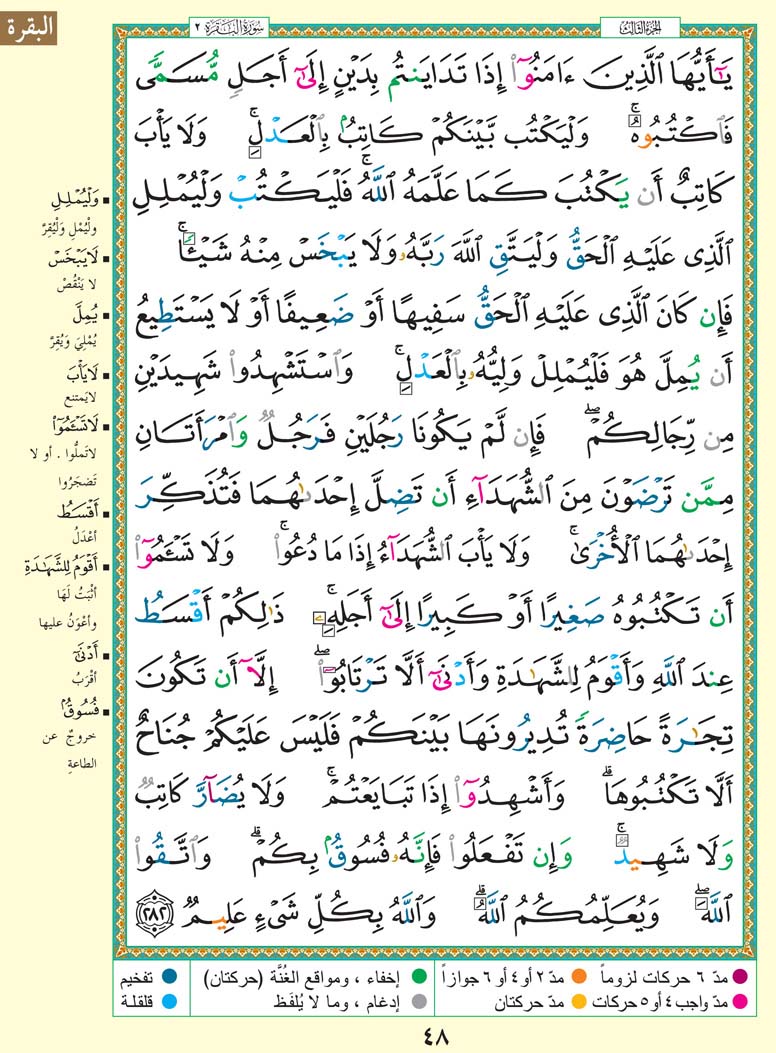 البقرة
الجزء الثالث
سورة البقرة ٢
يَـٰٓأَيُّهَا ٱلَّذِينَ ءَامَنُوٓا۟ إِذَا تَدَايَنتُم بِدَيْنٍ إِلَىٰٓ أَجَلٍ مُّسَمًّى
فَٱكْتُبُوهُ ۚ وَلْيَكْتُب بَّيْنَكُمْ كَاتِبٌۢ بِٱلْعَدْلِ ۚ وَلَا يَأْبَ
كَاتِبٌ أَن يَكْتُبَ كَمَا عَلَّمَهُ ٱللَّهُ ۚ فَلْيَكْتُبْ وَلْيُمْلِلِ
ٱلَّذِى عَلَيْهِ ٱلْحَقُّ وَلْيَتَّقِ ٱللَّهَ رَبَّهُۥ وَلَا يَبْخَسْ مِنْهُ شَيْـًٔا ۚ
فَإِن كَانَ ٱلَّذِى عَلَيْهِ ٱلْحَقُّ سَفِيهًا أَوْ ضَعِيفًا أَوْ لَا يَسْتَطِيعُ
أَن يُمِلَّ هُوَ فَلْيُمْلِلْ وَلِيُّهُۥ بِٱلْعَدْلِ ۚ وَٱسْتَشْهِدُوا۟ شَهِيدَيْنِ
مِن رِّجَالِكُمْ ۖ فَإِن لَّمْ يَكُونَا رَجُلَيْنِ فَرَجُلٌ وَٱمْرَأَتَانِ
مِمَّن تَرْضَوْنَ مِنَ ٱلشُّهَدَآءِ أَن تَضِلَّ إِحْدَىٰهُمَا فَتُذَكِّرَ
إِحْدَىٰهُمَا ٱلْأُخْرَىٰ ۚ وَلَا يَأْبَ ٱلشُّهَدَآءُ إِذَا مَا دُعُوا۟ ۚ وَلَا تَسْـَٔمُوٓا۟
أَن تَكْتُبُوهُ صَغِيرًا أَوْ كَبِيرًا إِلَىٰٓ أَجَلِهِۦ ۚ ذَٰلِكُمْ أَقْسَطُ
عِندَ ٱللَّهِ وَأَقْوَمُ لِلشَّهَـٰدَةِ وَأَدْنَىٰٓ أَلَّا تَرْتَابُوٓا۟ ۖ إِلَّآ أَن تَكُونَ
تِجَـٰرَةً حَاضِرَةً تُدِيرُونَهَا بَيْنَكُمْ فَلَيْسَ عَلَيْكُمْ جُنَاحٌ
أَلَّا تَكْتُبُوهَا ۗ وَأَشْهِدُوٓا۟ إِذَا تَبَايَعْتُمْ ۚ وَلَا يُضَآرَّ كَاتِبٌ
وَلَا شَهِيدٌ ۚ وَإِن تَفْعَلُوا۟ فَإِنَّهُۥ فُسُوقٌۢ بِكُمْ ۗ وَٱتَّقُوا۟
ٱللَّهَ ۖ وَيُعَلِّمُكُمُ ٱللَّهُ ۗ وَٱللَّهُ بِكُلِّ شَىْءٍ عَلِيمٌ ٢٨٢
▪ وَلْيُمْلِلِ
ولْيُمْلِ وَلْيُقِرَّ
▪ لَا يَبْخَسْ
لا يَنْقُصْ
▪ يُمِلَّ
يُمْلِيَ وَيُقِرَّ
▪ لَا يَأْبَ
لا يَمتنع
▪ لَا تَسْـَٔمُوٓا۟
لا تَملُّوا . أو لا
تَضجَرُوا
▪ أَقْسَطُ
أعْدَلُ
▪ أَقْوَمُ لِلشَّهَـٰدَةِ
أثْبَتُ لَهَا
وأعْوَنُ عليها
▪ أَدْنَىٰٓ
أقْرَبُ
▪ فُسُوقٌۢ
خروجٌ عن
الطاعةِ
مدّ ٦ حركات لزوماً
مدّ ٢ أو ٤ أو ٦ جوازاً
إخفاء ، ومواقع الغُنَّة (حركتان)
تفخيم
مدّ واجب ٤ أو ٥ حركات
مدّ حركتان
إدغام ، وما لا يُلفَظ
قلقلة
٤٨